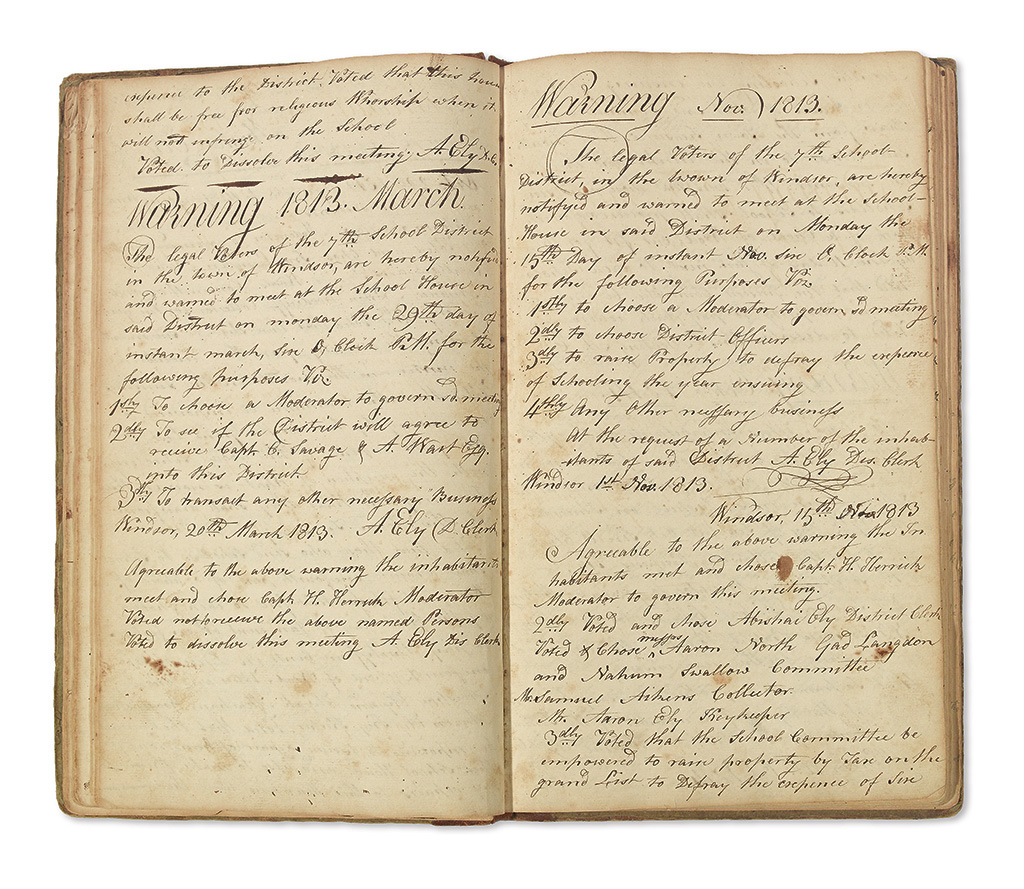 expence to the District. Voted that this house
shall be free for religious Whorship when it
will not infringe on the School
Voted to Dissolve this meeting. A. Ely D. C.
Warning 1813. March.
The legal Voters of the 7th School District
in the town of Windsor, are hereby notified
and warned to meet at the School House in
said District on monday the 29th day of
instant march, Six O, Clock P.M. for the
following purposes Viz.
1stly To choose a Moderator to govern sd. meeting
2dly To see if the District will agree to
receive Capt. C. Savage & A. Wait Esq.
into this District.
3dly To transact any other necessary Business
Windsor, 20th March 1813. A. Ely D. Clerk
Agreeable to the above warning the inhabitants
meet and chose Capt. H. Herrick Moderator
Voted not receive the above named Persons
Voted to dissolve this meeting A. Ely Dis Clerk
Warning Nov. 1813.
The legal Voters of the 7th School-
District in the town of Windsor, are hereby
notifyed and warned to meet at the School-
House in said District on Monday the
15th Day of instant Nov. six O, Clock P.M.
for the following Purposes Viz.
1stly to choose a Moderator to govern sd meeting
2dly to choose District Officers
3dly to raise Property to defray the expence
of Schooling the year ensuing
4thly Any other necssary business
At the request of a Number of the inhab-
itants of said District A. Ely Dis. Clerk
Windsor 1st Nov. 1813.
Windsor, 15th Nov 1813
Agreeable to the above warning the In
habitants met and chose Capt. H. Herrick
Moderator to govern this meeting.
2dly Voted and chose Abishai Ely District Clerk
Voted & Chose messrs Aaron North Gad Langdon
and Nahum Swallow Committee
Mr. Samuel Aikens Collector.
Mr. Aaron Ely Keykeeper
3dly Voted that the School Committee be
empowered to raise property by Tax on the
grand List to Defray the expence of Six